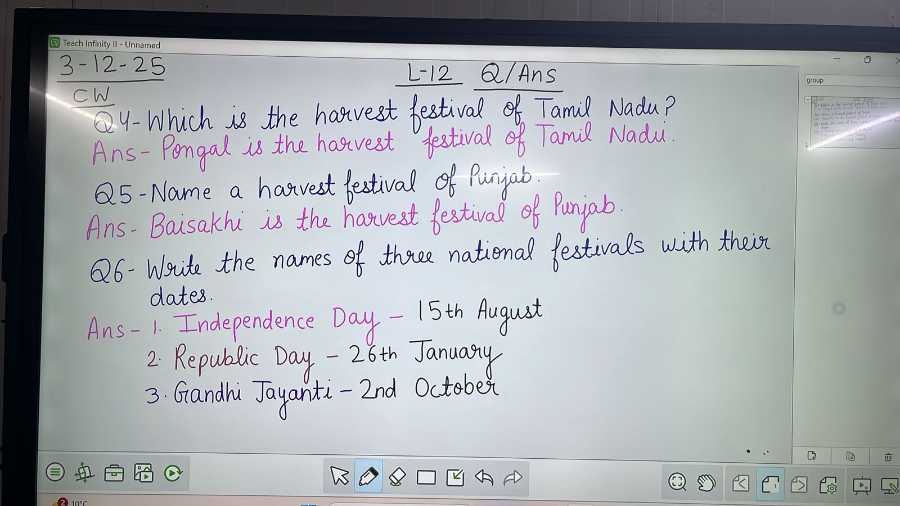 Teach Infinity II - Unnamed
3-12-25
L-12 Q/Ans
CW
group
Q4- Which is the harvest festival of Tamil Nadu?
Ans- Pongal is the harvest festival of Tamil Nadu.
Q5-Name a harvest festival of Punjab.
Ans- Baisakhi is the harvest festival of Punjab.
Q6- Write the names of three national festivals with their
dates.
Ans- 1. Independence Day - 15th August
2. Republic Day - 26th January
3. Gandhi Jayanti - 2nd October
10°C